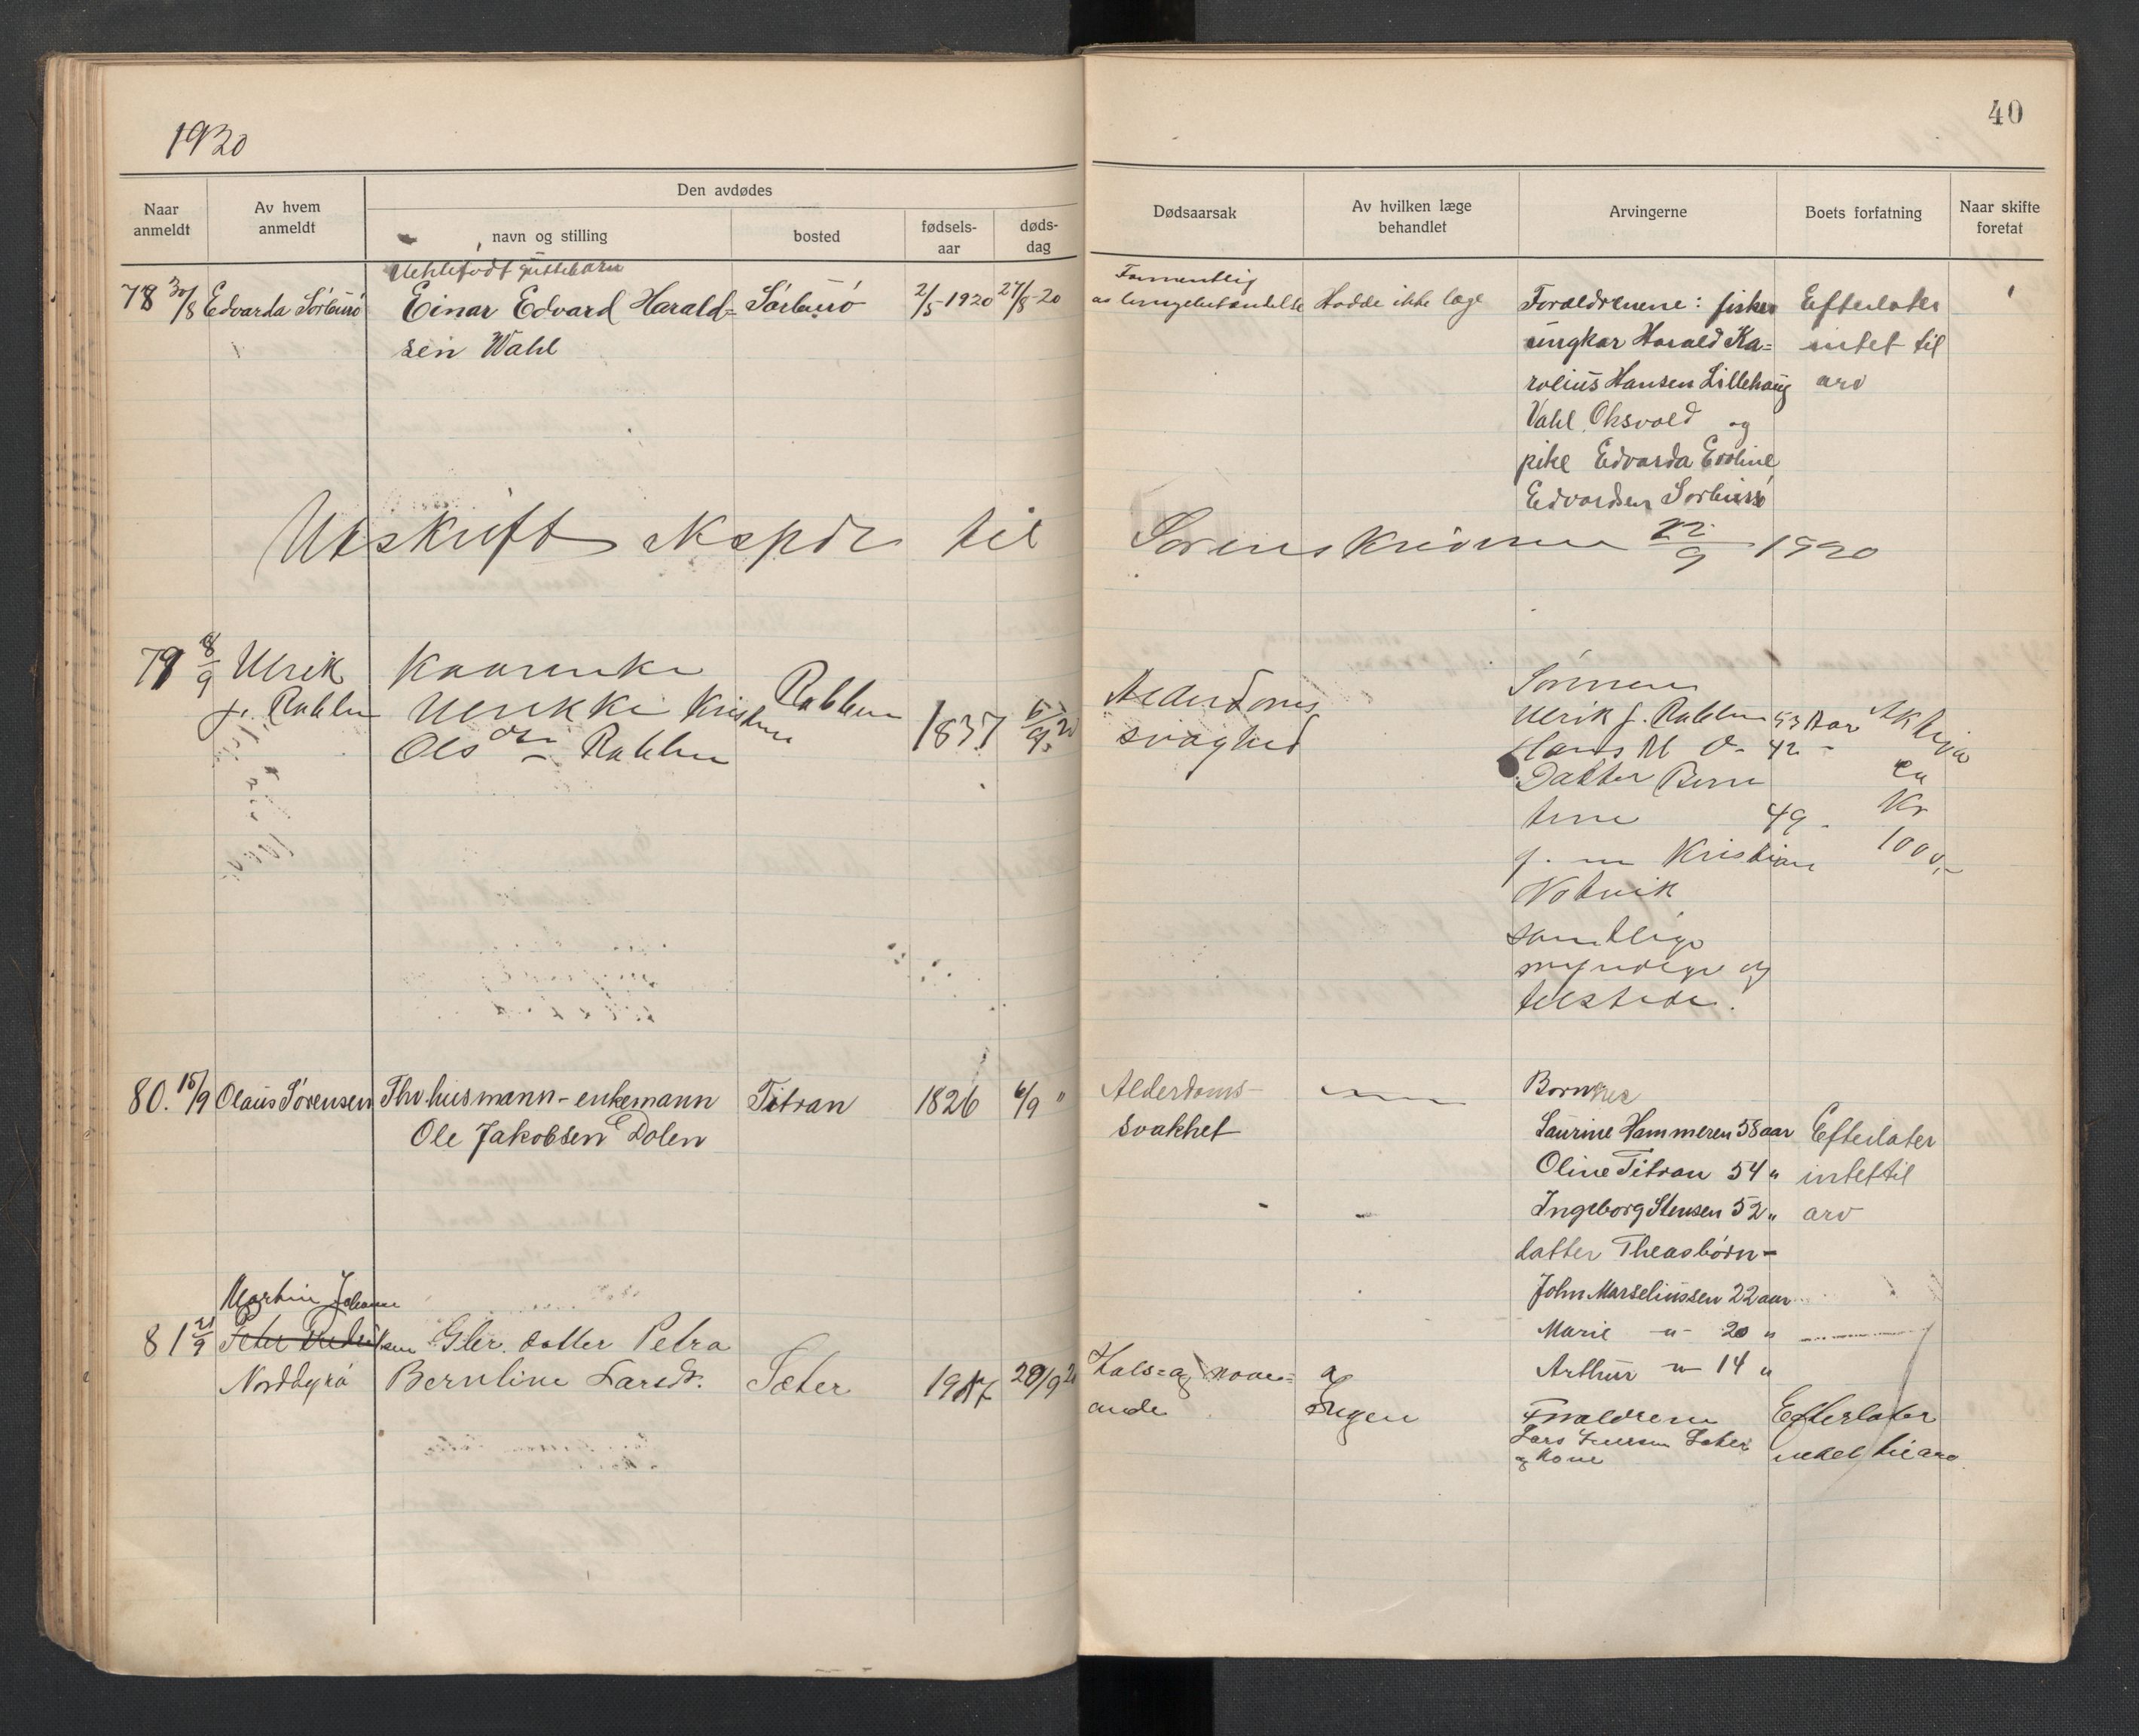 1920
40
Naar anmeldt
Av hvem anmeldt
Den avdødes
navn og stilling
bosted
fødsels-aar
døds-dag
Dødsaarsak
Av hvilken læge behandlet
Arvingerne
Boets forfatning
Naar skifte foretat
78 30/8 Edvarda Sörburö
Uektefødt guttebarn
Einar Edvard Harald=
sen Wahl
Sörburö
2/5-1920
27/8-20
Formentlig
Hadde ikke læge
Foraeldrenene: fisker
ungkar Harald Ka=
rolius Hansen Lillehaug
Vahl Oksvold og
pike Edvarda Evoline
Edvardsen
Efterlater
intet til
arv
Utskrift ekspdr til Sorenskriveren 22/9 1920
79 8/9 Ulrik
J. Rabben
Ulrikke Kristine
Ols Rabben
Rabben
1837
5/9 20
Alderdoms
svaghed
Sönnene
Ulrik J. Rabben 53 Aar
Hans 42 -
Datter Bern
tine 49 -
g. m Kristian
Notvik
samtlige
myndige og
tilstede.
Aktiva
ca
Kr
1000,-
80. 15/9 Olaus Sørensen
Fhv husmann - enkemann
Ole Jakobsen Dolen
Titran
1826
6/9 "
Alderdoms-
svakhet
Laurine Hammeren 58 aar
Oline Titran 54 "
Ingeborg Stensen 52 "
datter Theas børn -
John Marseliussen 22 aar
Marie -"- 20 "
Arthur -"- 14 "
Efterlater
intet til
arv
Martin Johanne
81 21/9
Norddyrö
datter Petra
Berntine Larsdr.
Sæter
20/9 20
Hals= og
ingen
Foraeldrene
Lars Sæter
og kone
Efterlater
intet til arv